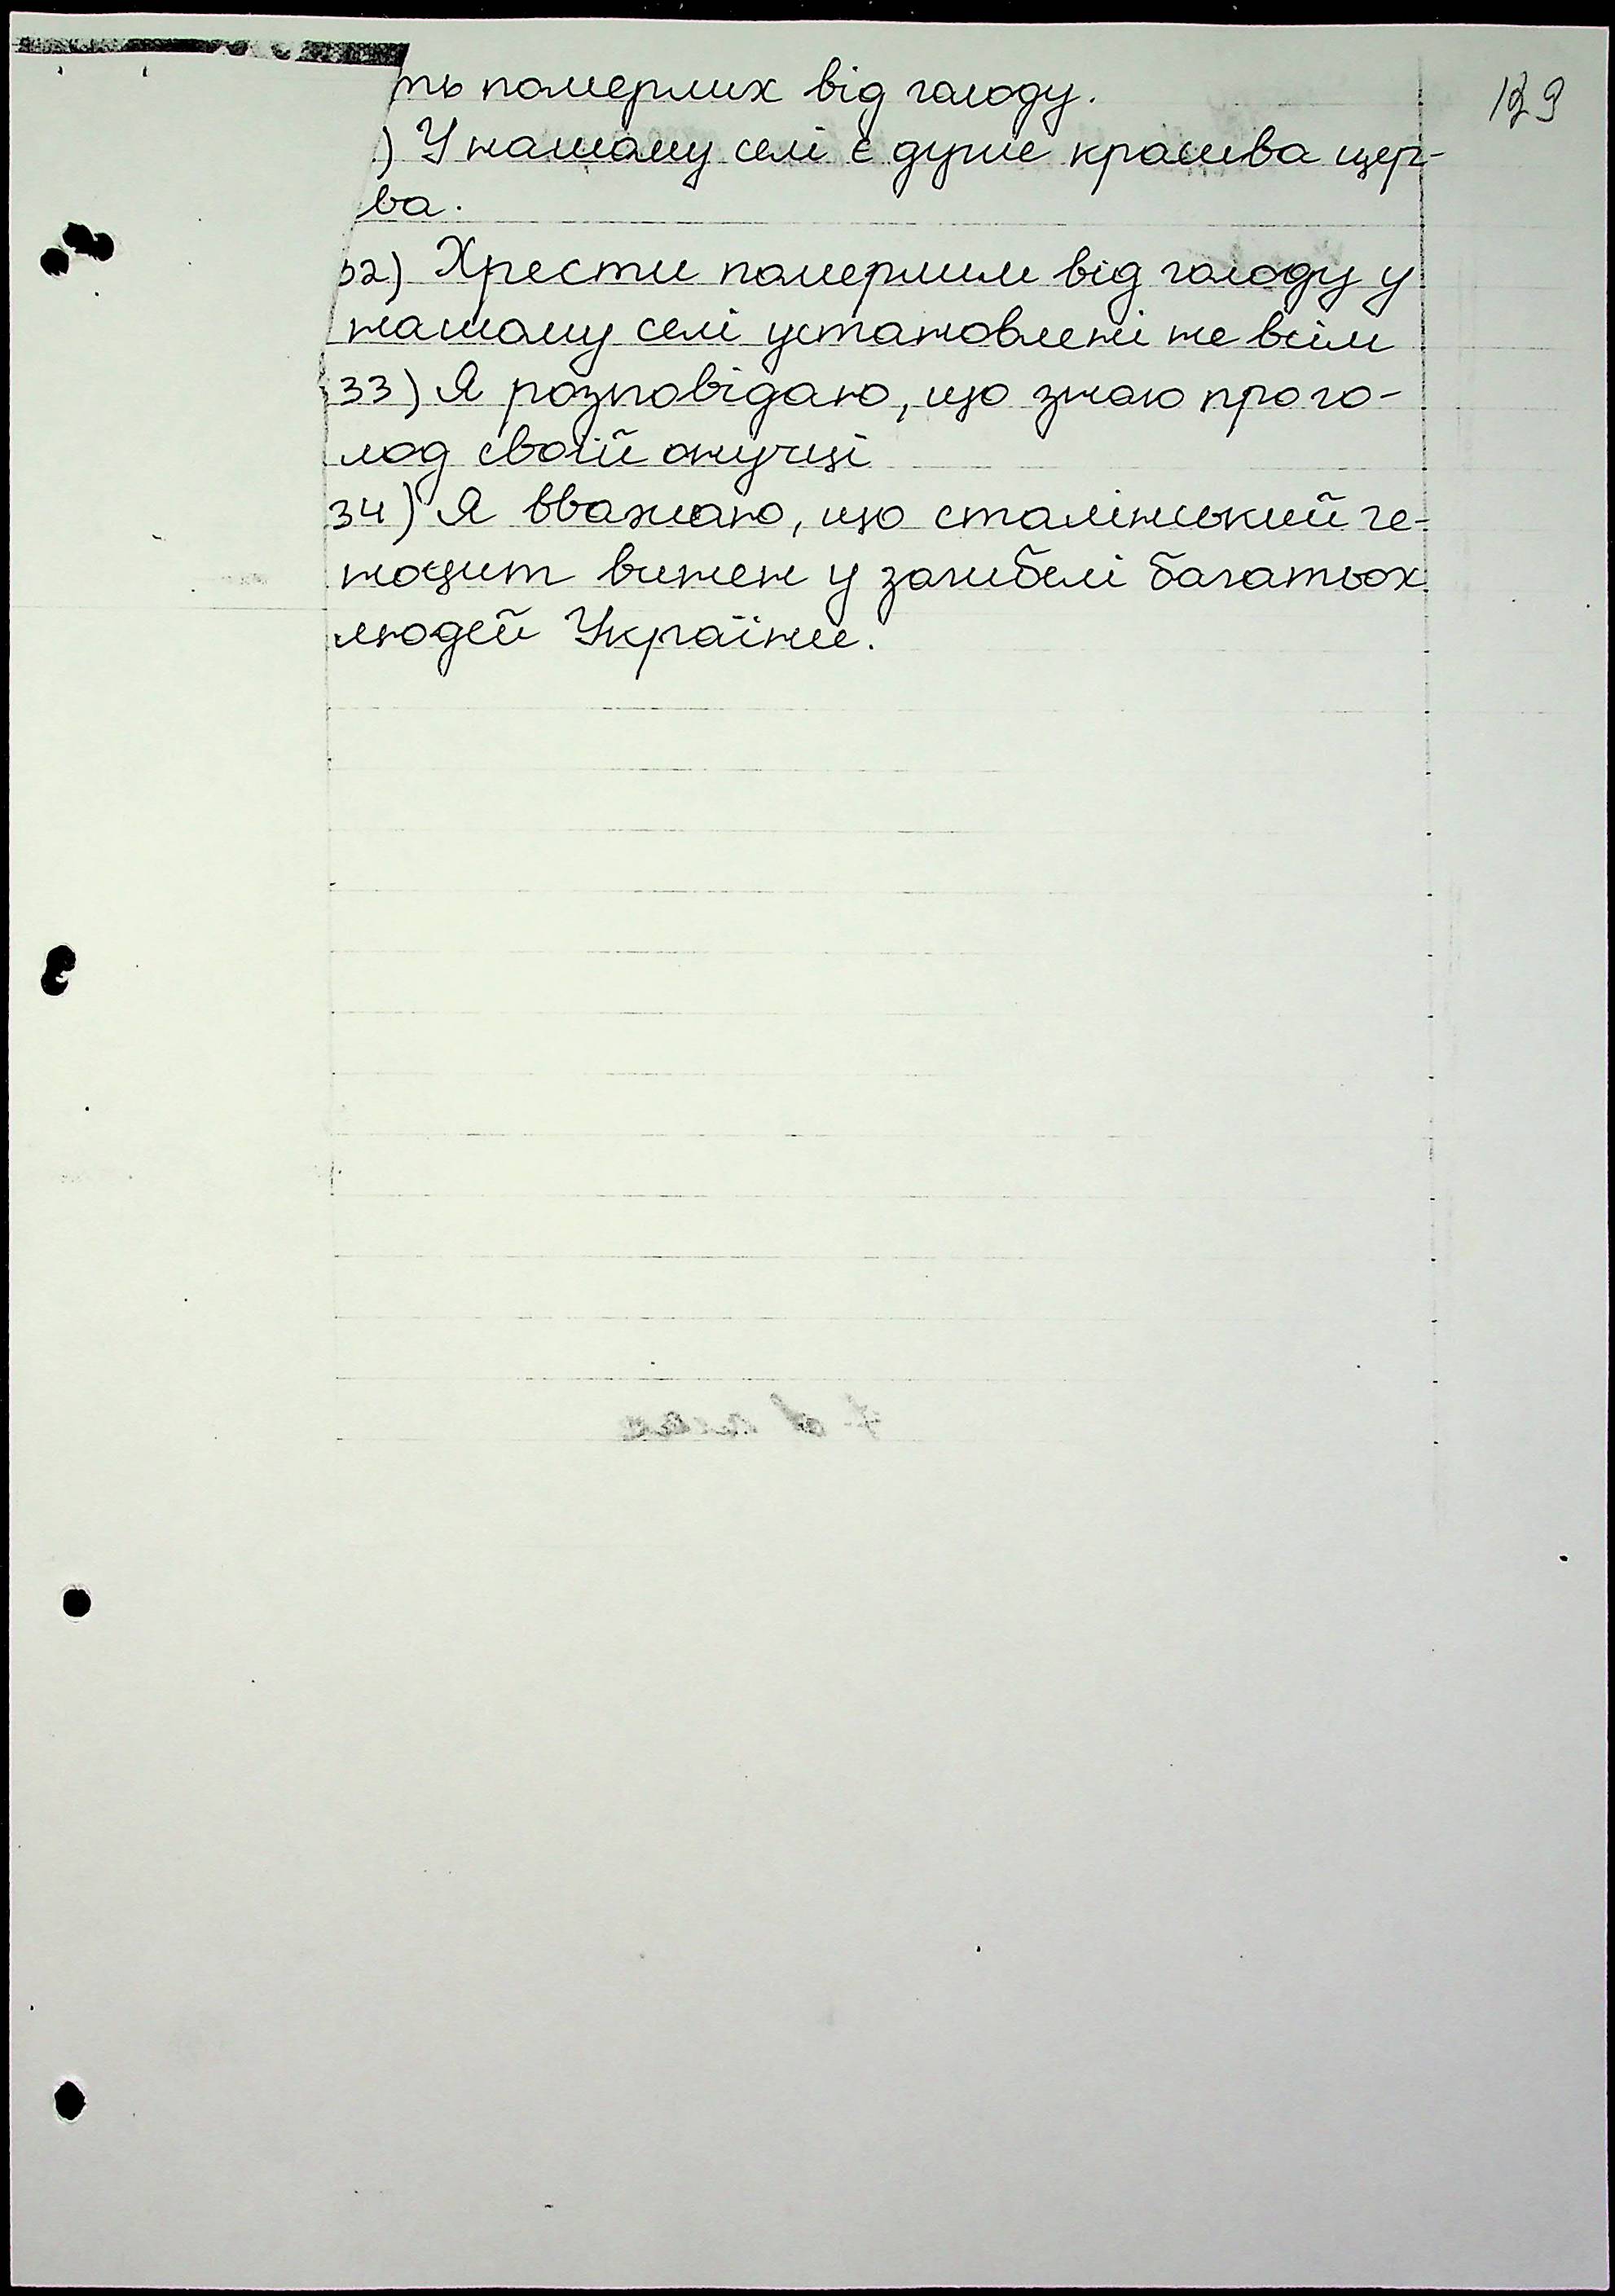 129
ть померлих від голоду.
) У нашому селі є дуже красива цер-
ва.
32) Хрести померлим від голоду у
нашому селі установлені не всім
33) Я розповідаю, що знаю про го-
лод своїй онучці
34) Я вважаю, що сталінський ге-
ноцит винен у загибелі багатьох
людей України.